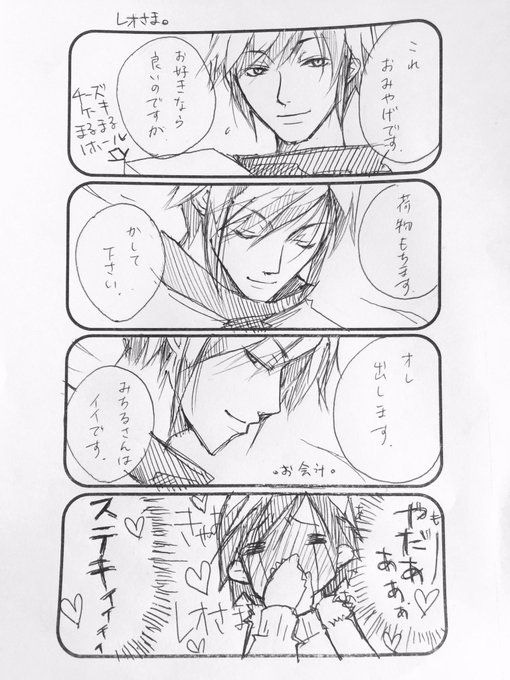 レオさま。
これ
おみやげです。
お好きなら
良いのですが
チーズ
ケーキ
まるまる
1ホール
荷物もちます。
かして
下さい。
オレ
出します。
みちるさんは
イイです。
。お会計。
やだぁ
ぁぁぁ
レオさま
ステキィィィィ